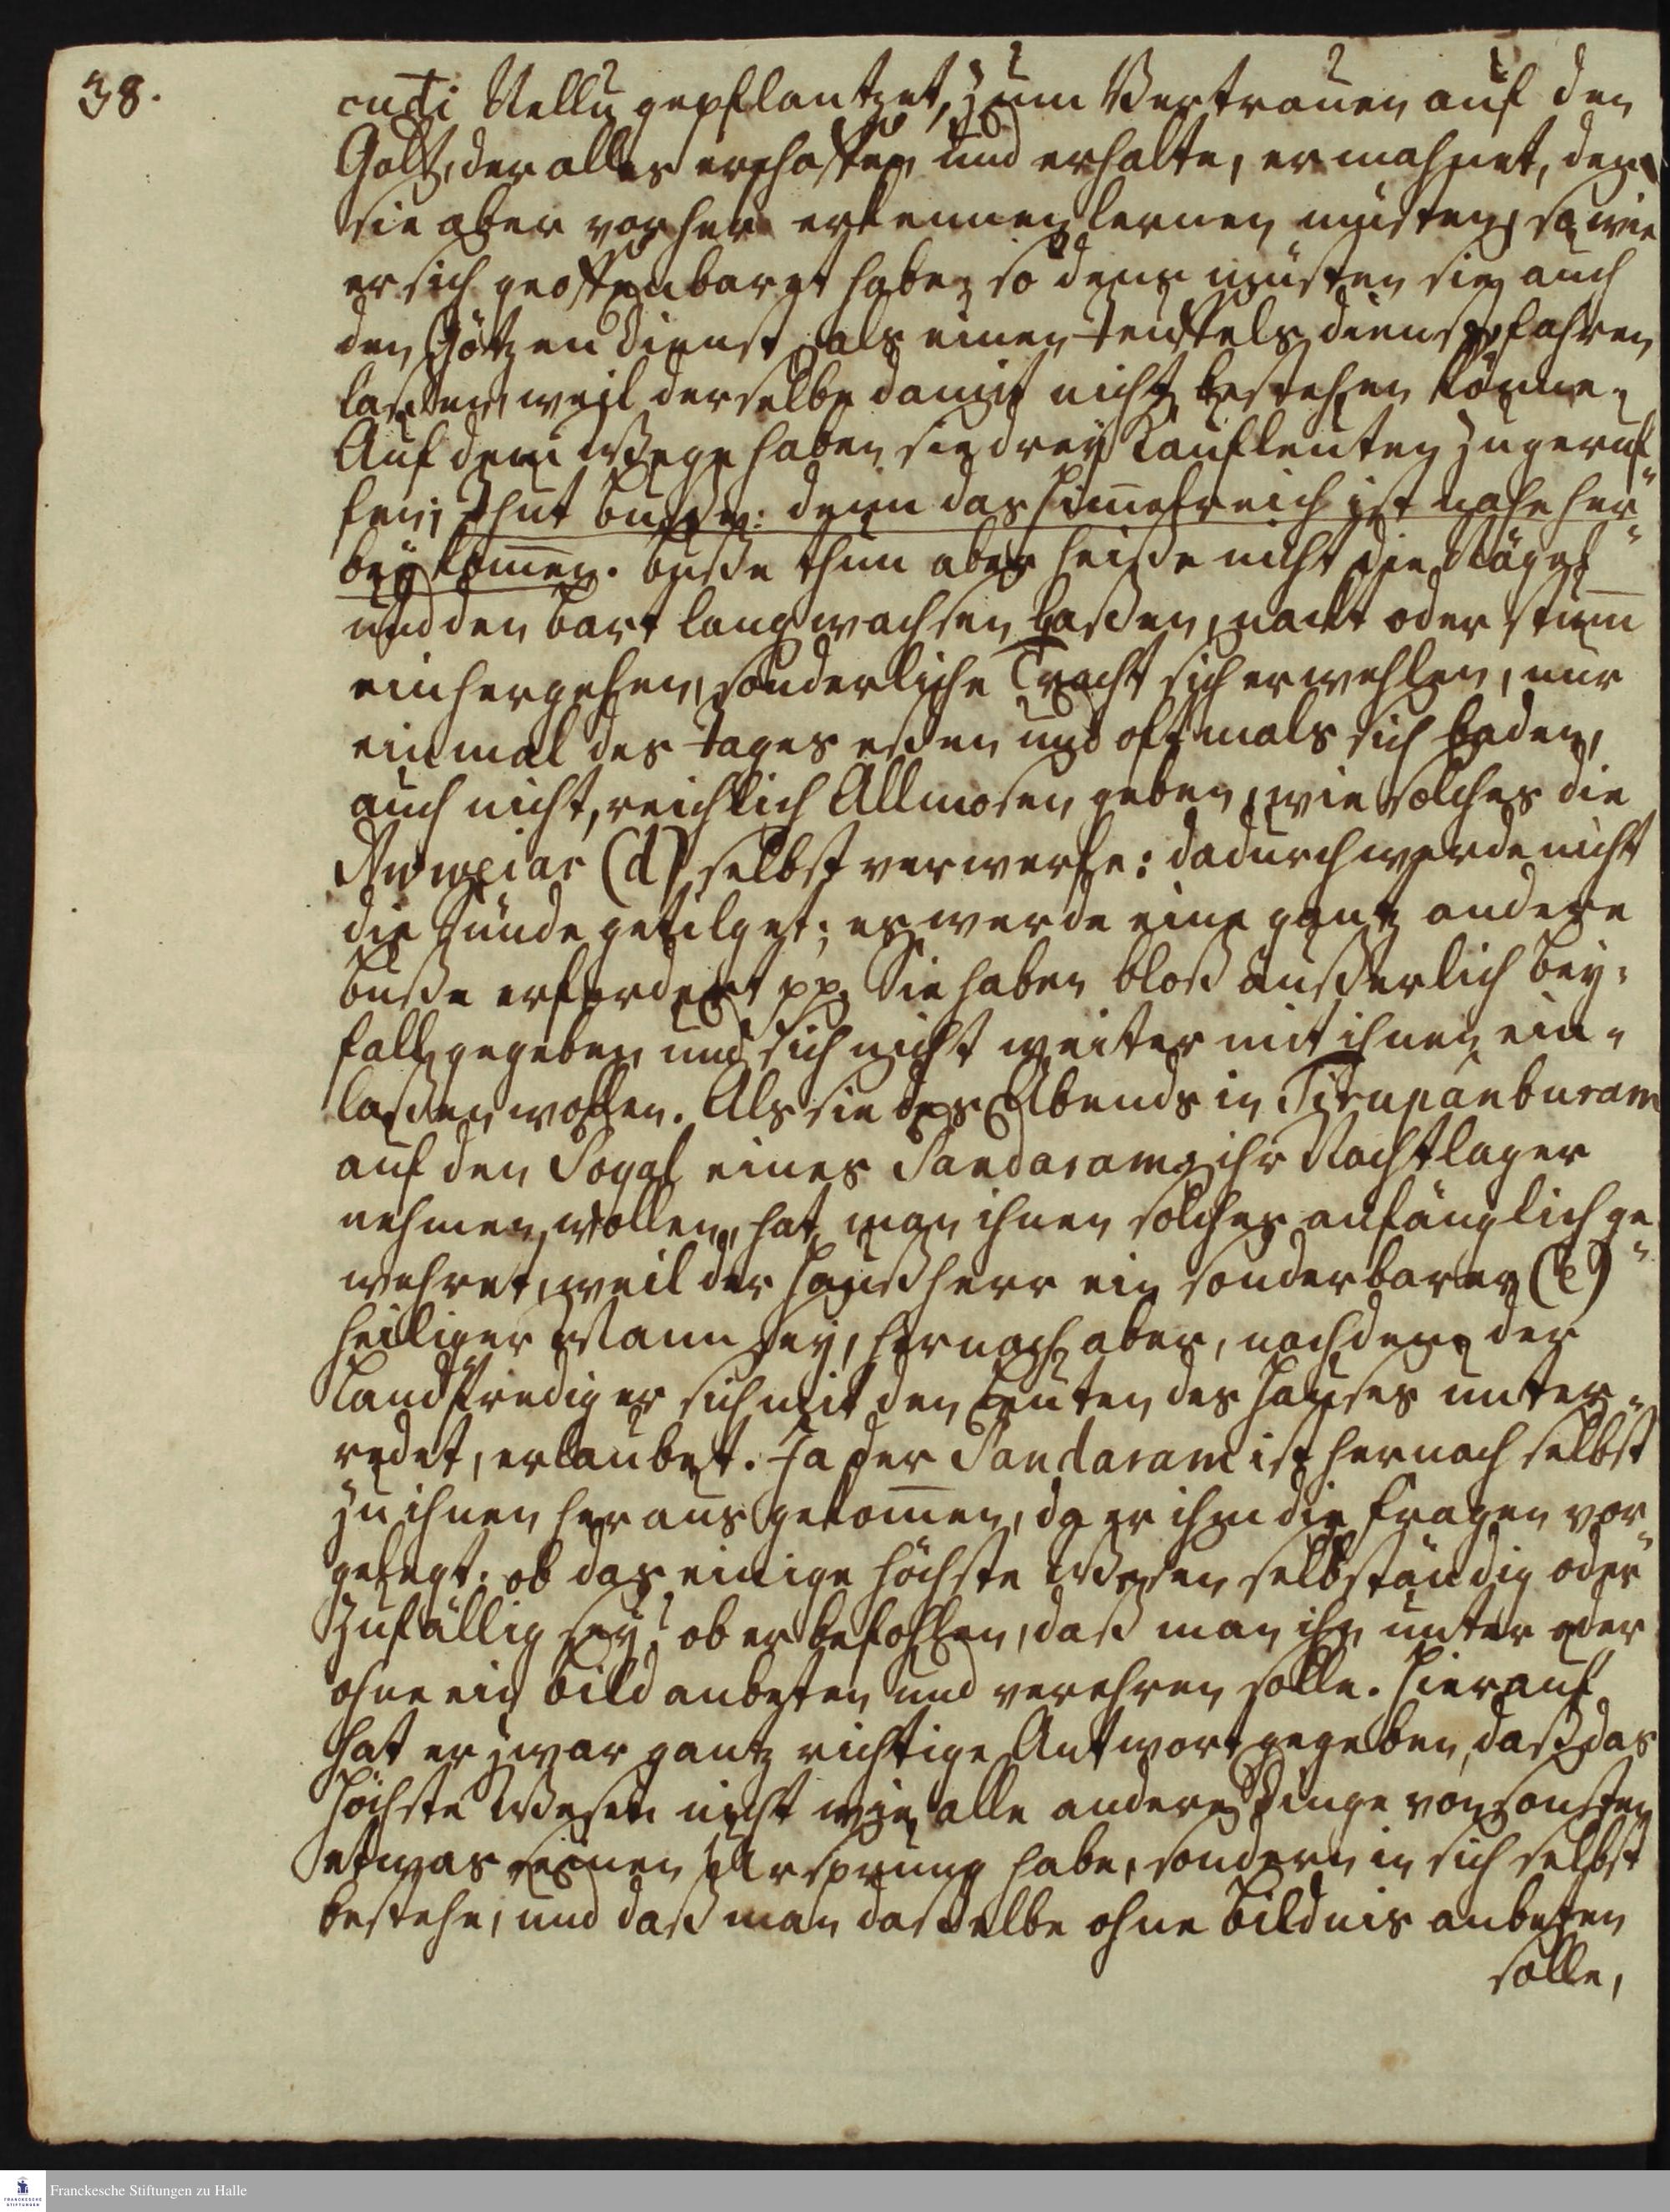 38.
cudi Nellu gepflantzet, zum Vertrauen auf den
Gott, der alles erschaffen und erhalte, ermahnet, den
sie aber vorher erkennen lernen müsten, so wie
er sich geoffenbaret habe; so denn müsten sie auch
den Götzendienst, als einen Teuffelsdienst fahren
lassen, weil derselbe damit nicht bestehen könne.
Auf dem Wege haben sie drey Kaufleuten zugeruf-
fen; Thut busse: denn das Himelreich ist nahe her-
bey komen. Busse thun aber heisse nicht die Nägel
und den bart lang wachsen lassen, nackt oder stum
einhergehen, sonderliche Tracht sich erwehlen, nur
einmal des Tages essen und oftmals sich baden,
auch nicht, reichlich Allmosen geben, wie solches die
(d) selbst verwerfe: dadurch werde nicht
die Sünde getilget; es werde eine gantz andere
busse erfordert pp. Sie haben bloß äusserlich Bey-
fall gegeben und sich nicht weiter mit ihnen ein-
lassen wollen. Als sie des Abends in Tirupanburam
auf den Poyal eines Pandarams ihr Nachtlager
nehmen wollen, hat man ihnen solches anfänglich ge-
wehret, weil der Haußherr ein sonderbarer (e)
heiliger Mann sey, hernach aber, nachdem der
Landprediger sich mit den Leuten des Hauses unter-
redet, erlaubet. Ja der Pandaram ist hernach selbst
zu ihnen heraus gekomen, da er ihm die fragen vor-
gelegt: ob das einige höchste Wesen selbständig oder
zufällig sey? ob er befohlen, daß man ihn unter oder
ohne ein bild anbeten und verehren solle. Hierauf
hat er zwar gantz richtige Antwort gegeben, daß das
höchste Wesen nicht wie alle andere Dinge von sonsten
etwas seinen Ursprung habe, sondern in sich selbst
bestehe, und daß man dasselbe ohne Bildnis anbeten
solle,
Franckesche Stiftungen zu Halle